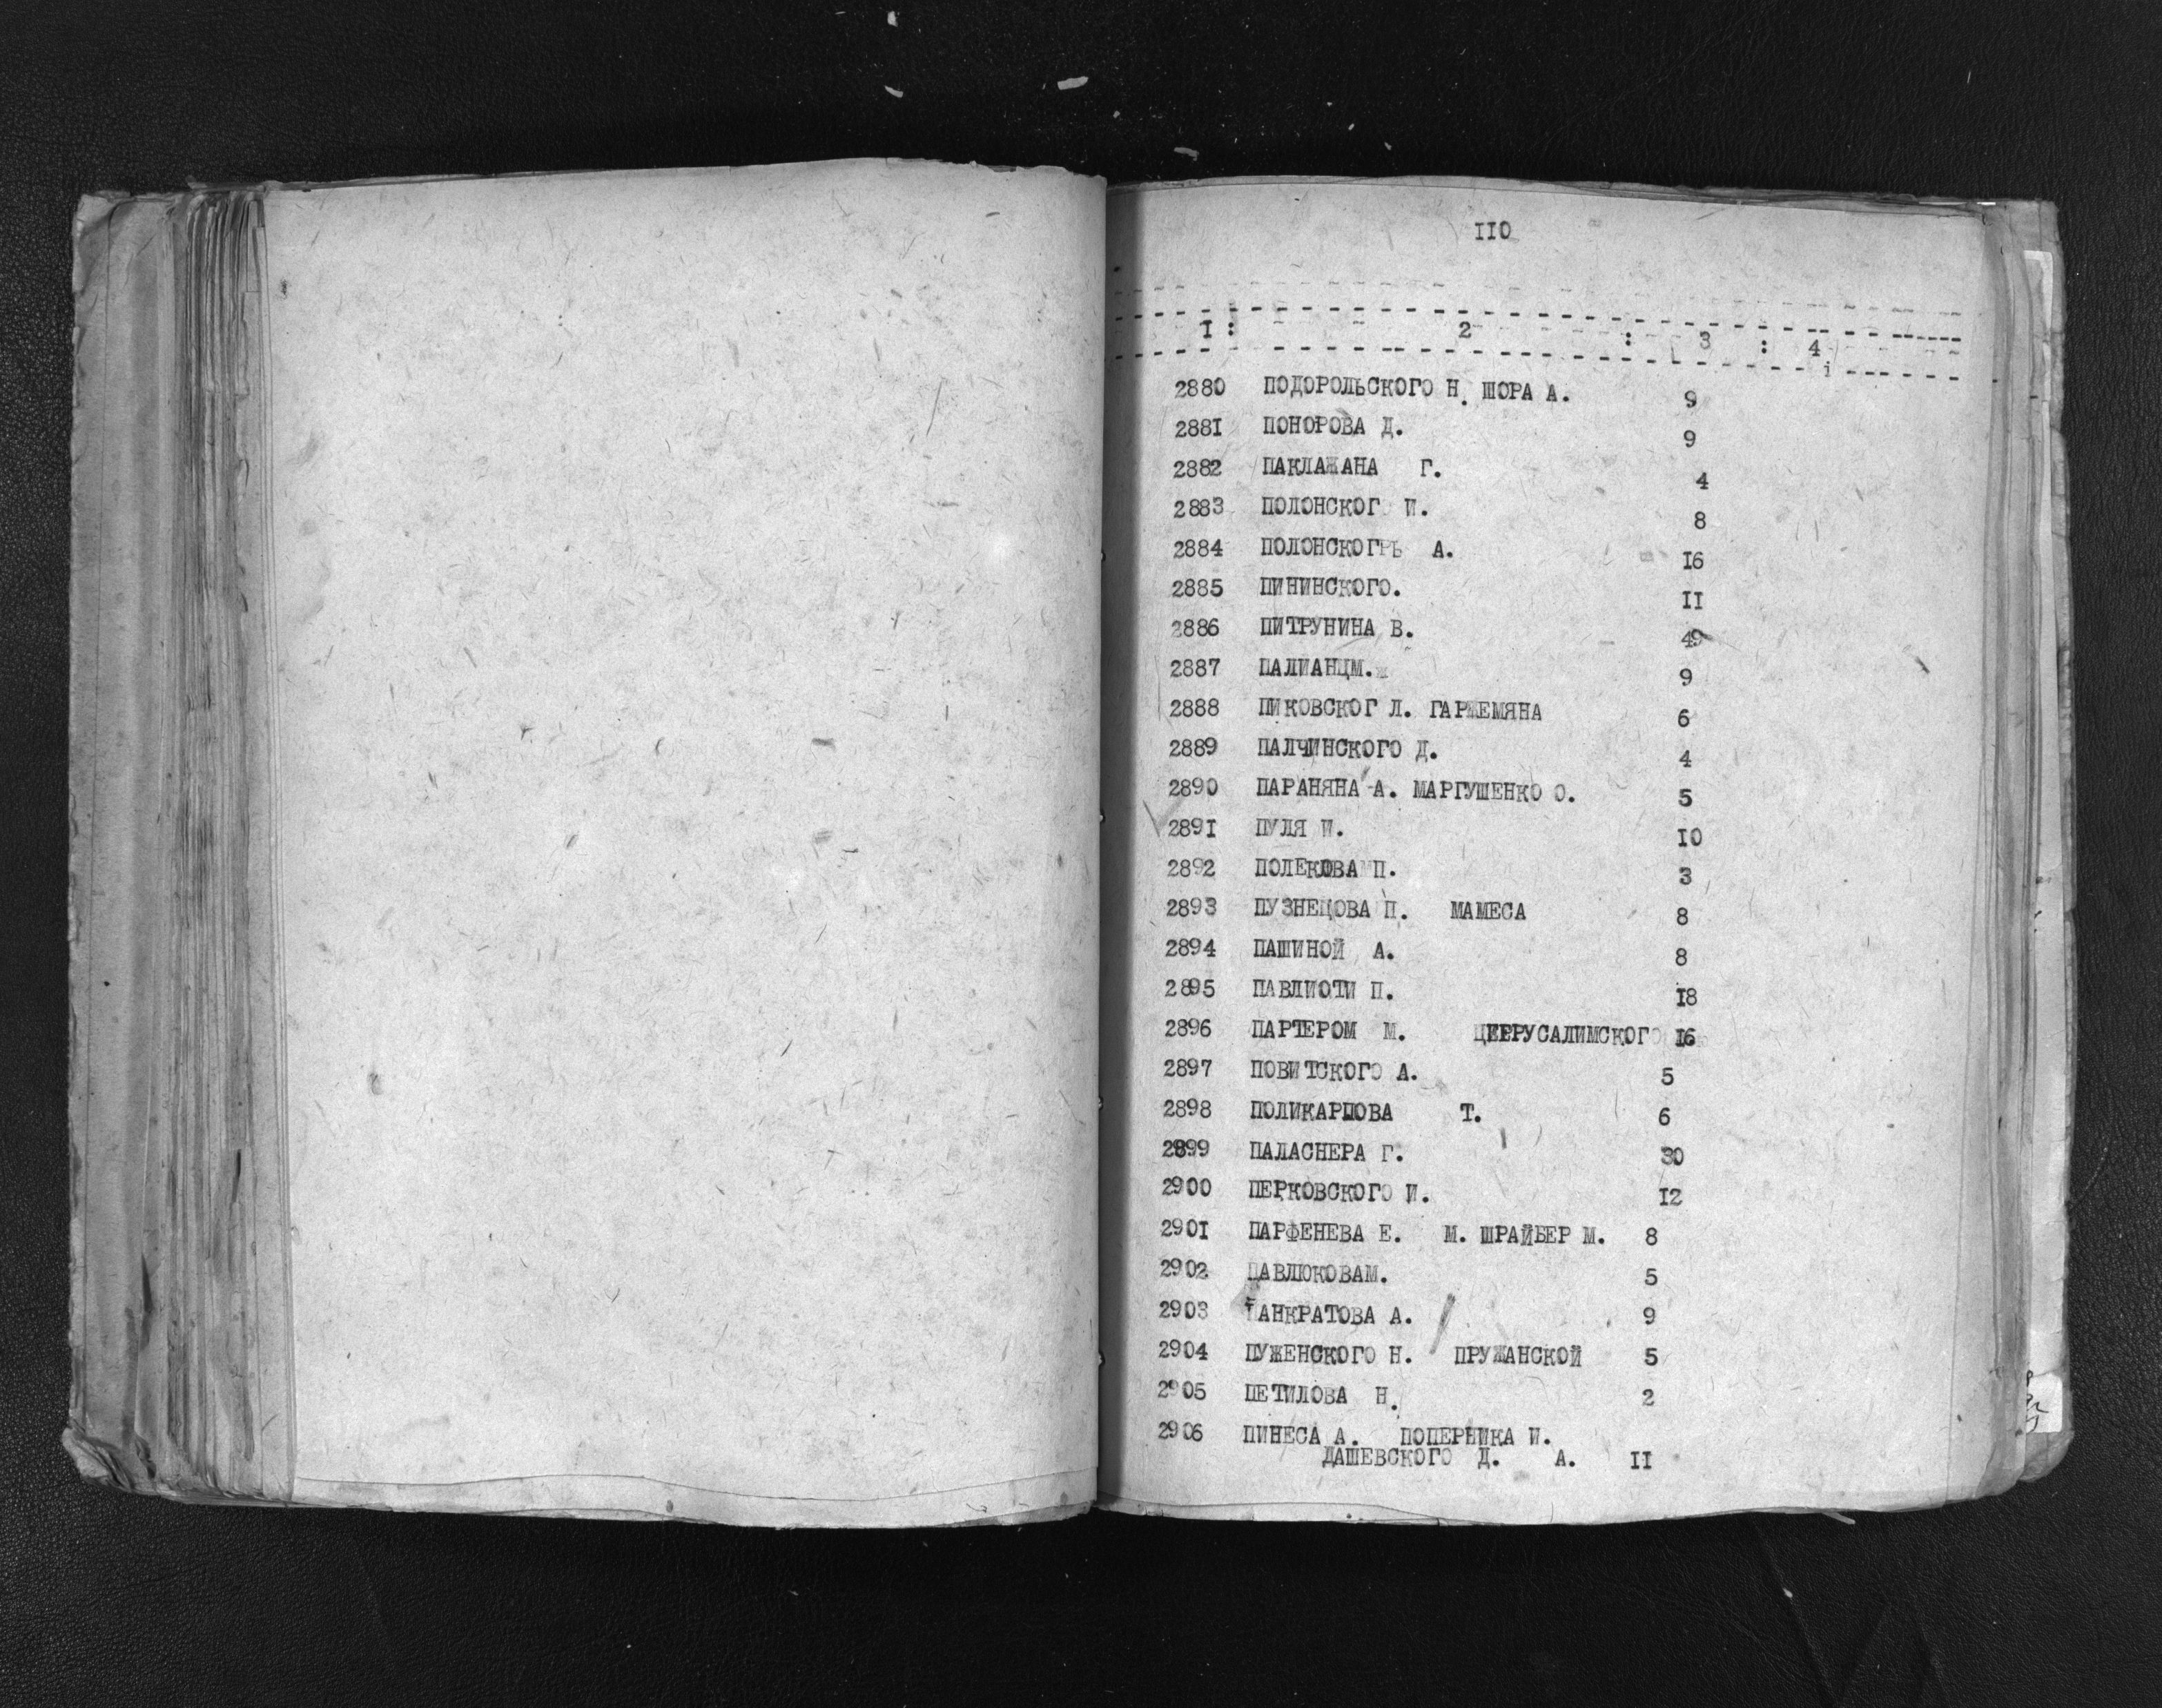 110
I : 2 : 3 : 4
2880 ПОДОРОЛЬСКОГО Н. ШОРА А. 9
2881 ПОНОРОВА Д. 9
2882 ПАКЛАЖАНА Г. 4
2883 ПОЛОНСКОГО И. 8
2884 ПОЛОНСКОГРЬ А. I6
2885 ПИНИНСКОГО. II
2886 ПИТРУНИНА В. 49
2887 ПАЛИАНЦМ. 9
2888 ПИКОВСКОГ Л. ГАРЖЕМЯНА 6
2889 ПАЛЧИНСКОГО Д. 4
2890 ПАРАНЯНА А. МАРГУШЕНКО О. 5
289I ПУЛЯ И. I0
2892 ПОЛЕКОВА П. 3
2893 ПУЗНЕЦОВА П. МАМЕСА 8
2894 ПАШИНОЙ А. 8
2895 ПАВЛИОТИ П. I8
2896 ПАРТЕРОМ М. ЦЕРРУСАЛИМСКОГО I6
2897 ПОВИТСКОГО А. 5
2898 ПОЛИКАРПОВА Т. 6
2899 ПАЛАСНЕРА Г. 30
2900 ПЕРКОВСКОГО И. I2
290I ПАРФЕНЕВА Е. М. ШРАЙБЕР М. 8
2902 ПАВЛЮКОВАМ. 5
2903 ПАНКРАТОВА А. 9
2904 ПУЖЕНСКОГО Н. ПРУЖАНСКОЙ 5
2905 ПЕТИЛОВА Н. 2
2906 ПИНЕСА А. ПОПЕРНИКА И.
ДАШЕВСКОГО Д. А. II